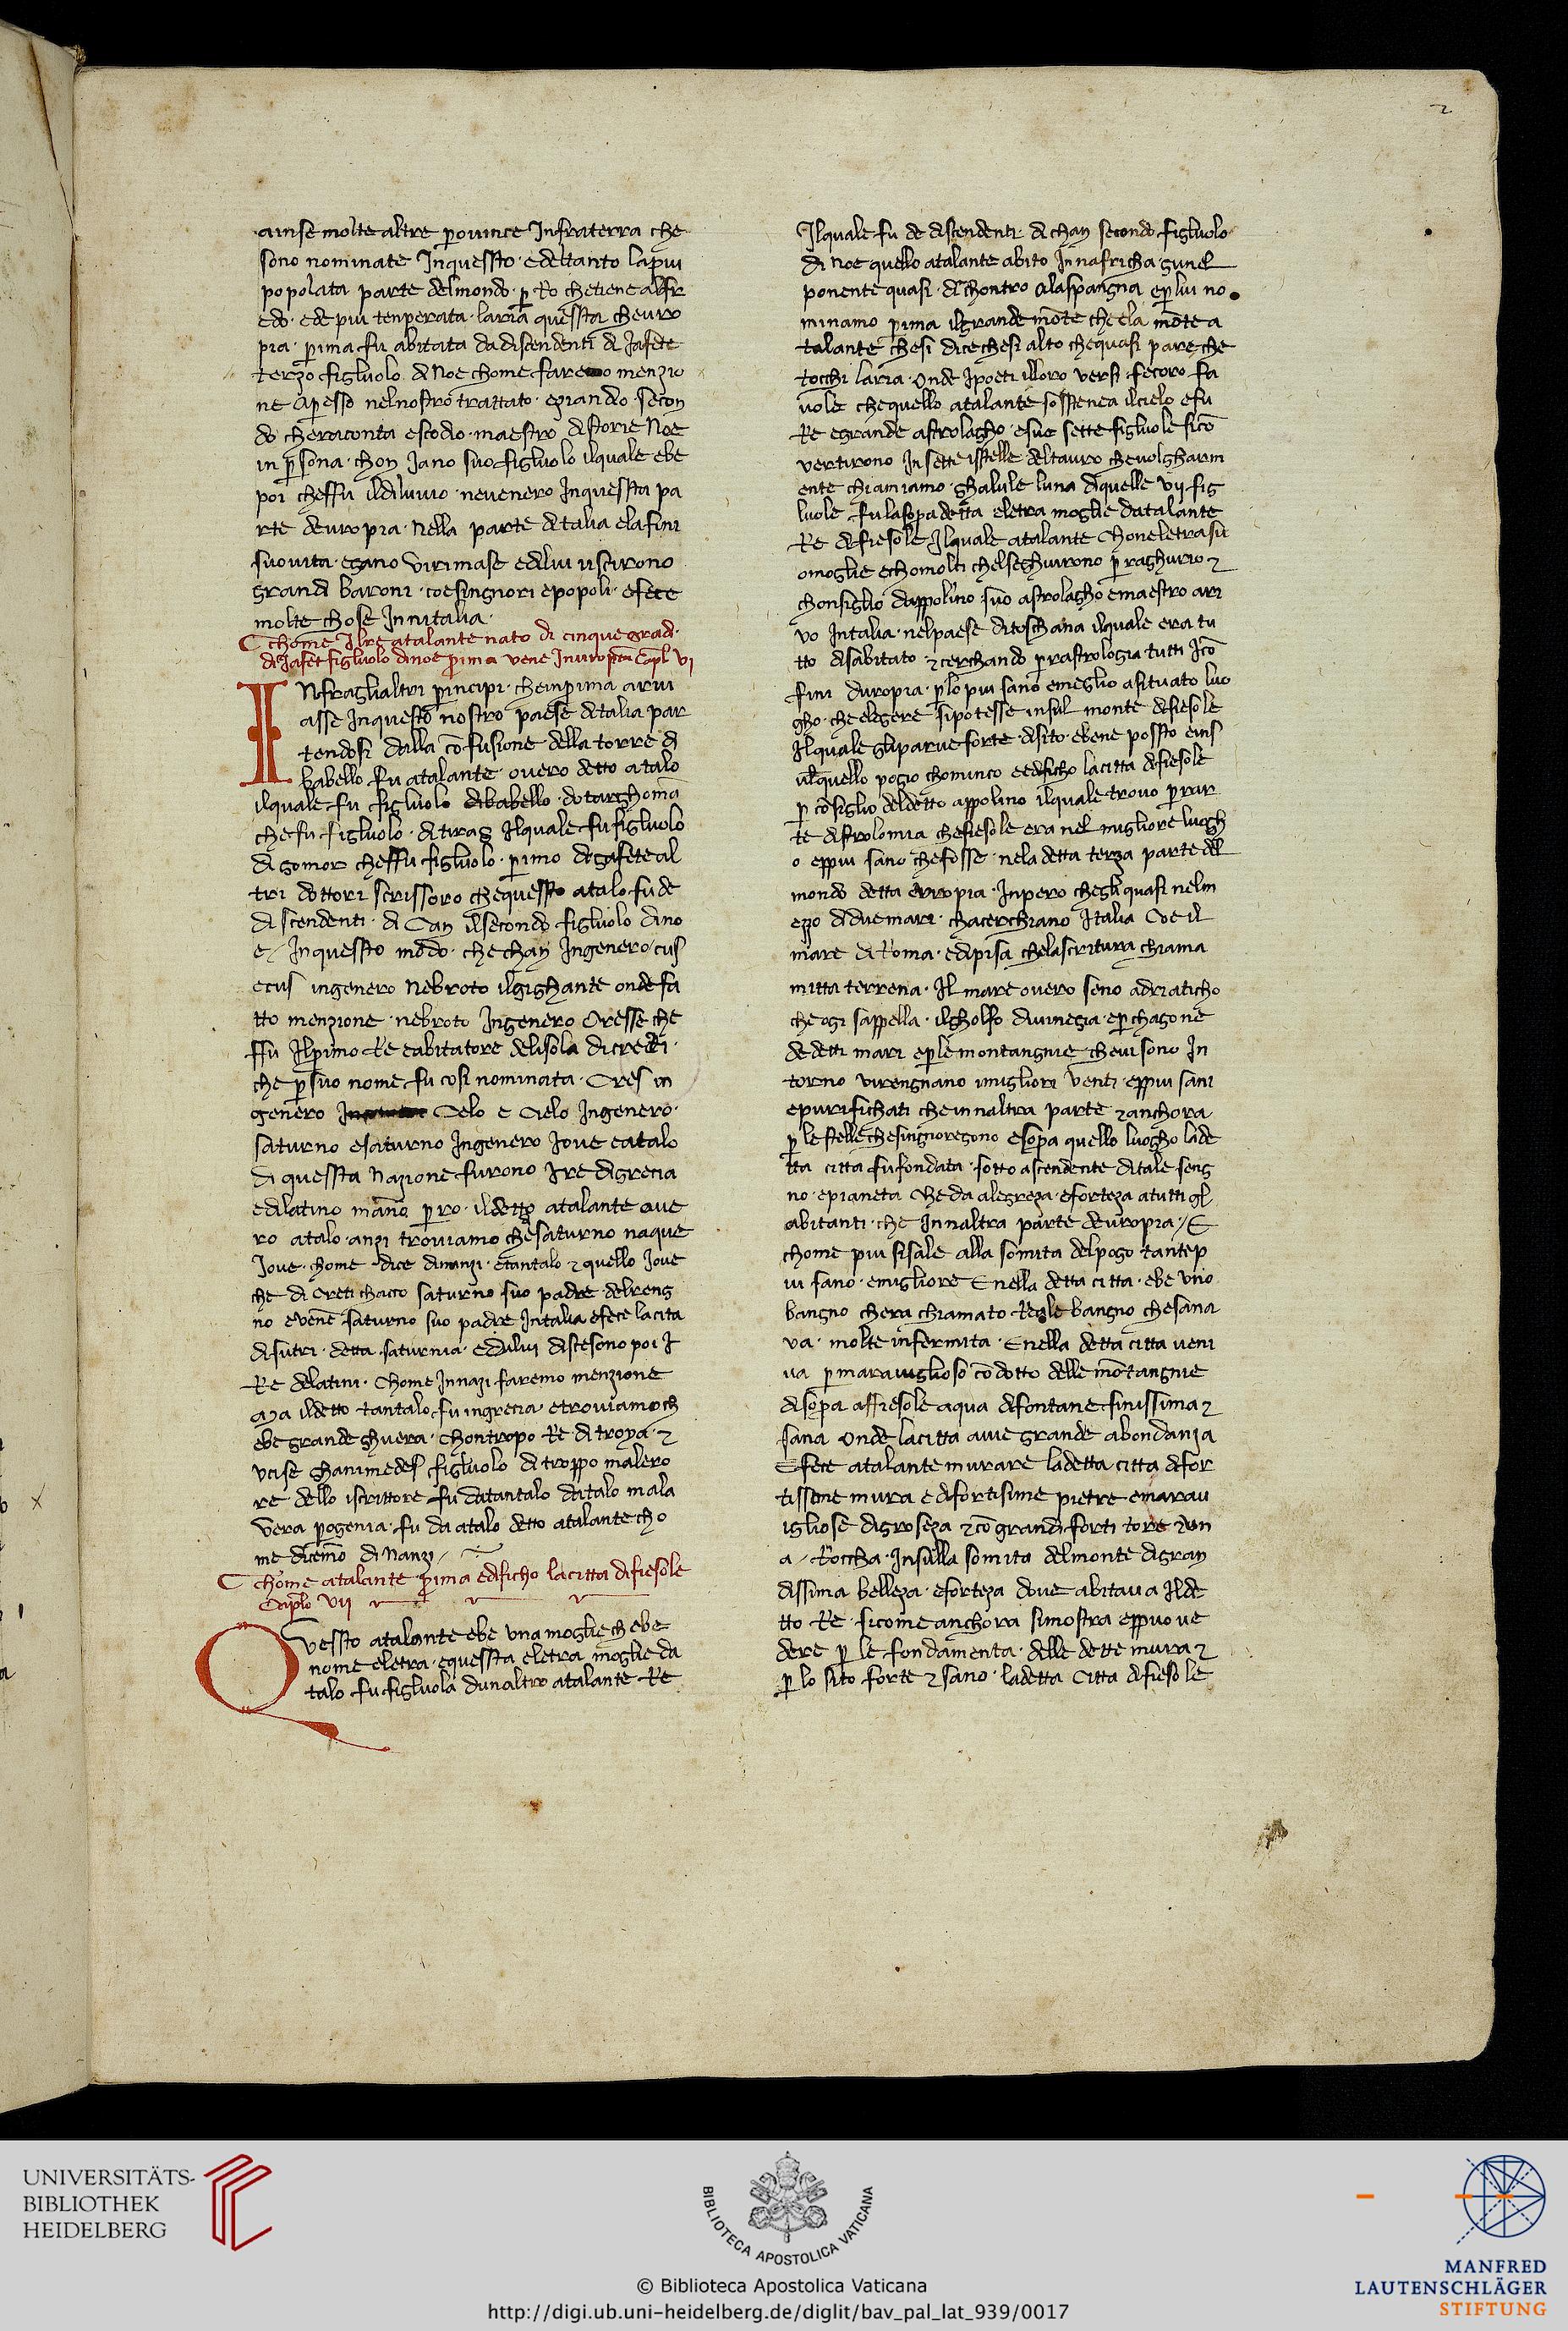 2
avisse molte altre provincie Infra terra che
sono nominate Inquessto · e dettanto la piu
popolata parte delmondo · p Ro chetiene alfr
edo · ede piu tenperata · laria quessta chevro
pia · prima fu abitata dadiscendenti di Jafete
terzo figluolo di Noe chome faremo menzio
ne apresso nelnostro trattato · eziandio · secon
do cheraconta escodio · maestro di storie Noe
in persona · chon Jano suo figluolo ilquale ebe
poi cheffu ildiluvio · nevenero Inquessta pa
rte deuropia · Nella parte ditalia elafini
suo vita · egano virimase edilui uscirono
grandi baroni · e singnori epopoli · efece
molte chose Innitalia ·
Chome Ilre atalante nato di cinque grad ·
di Jafet figluolo dinoe prima vene Inuropia Capl VI
INfraglialtri principi · cheinprima arivi
asse Inquesto nostro paese ditalia par
tendosi dalla cõfusione della torre di
babello fu atalante · overo detto atalo
ilquale fu figluolo dibabello · di targhoma
chefu figluolo · di tiras Ilquale fu figluolo
di gomor cheffu figluolo · primo digafete al
tri dottori scrissoro chequessto atalo fu de
discendenti · di Can ilsecondo figluolo dino
e / Inquessto modo · che chan Ingenero / cus
ecus ingenero Nebroto ilgighante onde fa
tto menzione · nebroto Ingenero Cresse che
ffu Ilprimo Re eabitatore delisola dicreti ·
che p suo nome fu cosi nominata · Cres in
genero Celo e Cielo Ingenero ·
saturno esaturno Ingenero Jove eatalo
di quessta Nazione furono Ire digrecia
edilatino mano pero · ildetto atalante ove
ro atalo · anzi troviamo chesaturno naque
Jove · chome dice dinanzi · etantalo · ⁊ quello Jove
che di Creti chacco saturno suo padre delreng
no evene saturno suo padre Initalia efece lacita
di sutri · detta saturnia · edilui discesono poi I
Re delatini · Chome Innazi faremo menzione
Ma ildetto tantalo fu ingrecia · etroviamo ch
ebe grande ghuera · chontropo Re di troya · ⁊
vcise ghanimedes figluolo di troppo malero
re dello iscrittore fu datantalo datalo mala
vera progenia · fu da atalo detto atalante cho
me dicemo di Nanzi /
Chome atalante prima edificho lacitta difiesole
Capitolo VII
Quessto atalante ebe una moglie chebe
nome eletra · equessta eletra moglie da
talo fu figluola dunaltro atalante Re
Ilquale fu de discendenti · di chan secondo figluolo
di Noe quello atalante abito Innafricha gunel
ponente quasi · dichontro alaspangna eplui no
minamo prima ilgrande mõte che ela mõte a
talante chesi dice chesi alto chequasi pareche
tocchi laria · Onde Ipoeti illoro versi fecoro fa
vole chequello atalante sosstenea ilcielo efu
Re egrande astrolagho · esue sette figluole sicõ
vertirono Insette isstelle deltauro chevolgharm
ente chiamiamo · ghalule luna diquelle VII fig
luole fu lasopradetta eletra moglie datalante
Re difiesole Ilquale atalante choneletrasu
omoglie echomolti chelseghuirono p raghurio ⁊
chonsiglio dappolino suo astrolagho emaestro ari
vo Intalia nelpaese ditoschana ilquale era tu
tto disabitato · ⁊cerchando prastrologia tutti Icõ
fini duropia · p lo piu sano emeglio asituato luo
gho · che elegere sipotesse insul monte difiesole
Ilquale gliparve forte disito · ebene possto eins
ulquello pogio chominco eedificho lacitta difiesole
p cõsiglio deldetto appolino ilquale trovo prar
te distrolomia chefiesole era nel migliore luogh
o eppiu sano chefosse · nela detta terza parte del
mondo detta evropia · Inpero chegli quasi nelm
ezzo di due mari · chacerchiano Italia cioe il
mare di Roma · edipisa chelascrittura chiama
mitta terrena · Il mare overo seno adriaticho
che ogi sappella · ilgholfo divinegia · eper chagone
dedetti mari eple montangnie · chevi sono In
torno virengnano imigliori venti · eppiu sani
epurifichati cheinnaltra parte ⁊anchora ·
p lestelle chesingnoregono esopra quello luogho lade
tta citta fu fondata · sotto ascendente ditale seng
no · epianeta Cheda alegreza · eforteza atutti gl
abitanti · che Innaltra parte deuropia · / E
chome piu sisale alla somita delpogo · tantep
iu sano · emigliore E nella detta citta · ebe uno
bangno chera chiamato Reale bangno chesana
va · molte infermita · Enella detta citta veni
va p maraviglioso cõdotto delle mõtangnie
disopra affiesole aqua difontane finissima ⁊
sana Onde lacitta avie grande abondanza
Efece atalante murare ladetta citta difor
tissime mura e difortisime pietre emarav
igliose digroseza ⁊cõ grandi forti tore ⁊un
a / Roccha · Insulla somita delmonte digran
dissima belleza · eforteza dove abitava Ilde
tto Re · sicome anchora simostra eppuo ve
dere p le fondamenta · delle dette mura ⁊
p lo sito forte ⁊ sano · ladetta Citta difiesole
UNIVERSITÄTS-
BIBLIOTHEK
HEIDELBERG
BIBLIOTECA APOSTOLICA VATICANA
© Biblioteca Apostolica Vaticana
http://digi.ub.uni-heidelberg.de/diglit/bav_pal_lat_939/0017
MANFRED
LAUTENSCHLÄGER
STIFTUNG